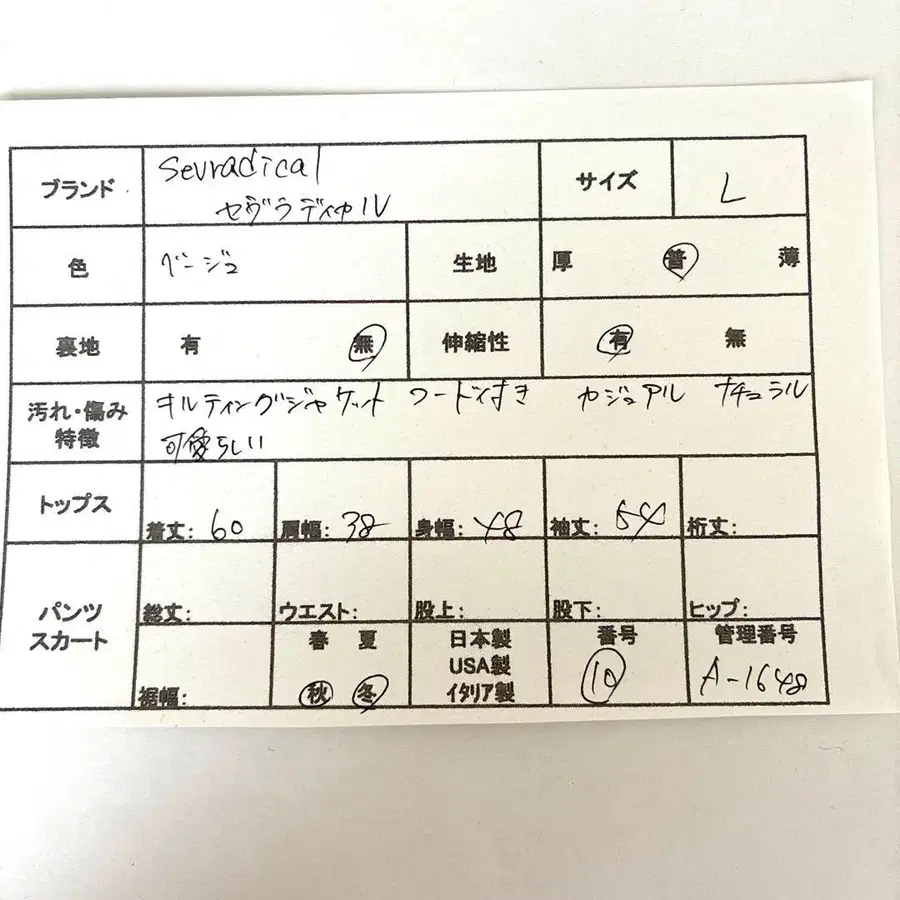 ブランド sevradical サイズ L
セヴラディカル
色 ベージュ 生地 厚 普 薄
裏地 有 無 伸縮性 有 無
汚れ・傷み キルティングジャケット フード付き カジュアル ナチュラル
特徴 可愛らしい
トップス 着丈: 60 肩幅: 38 身幅: 48 袖丈: 54 裄丈:
パンツ 総丈: ウエスト: 股上: 股下: ヒップ:
スカート 春 夏 日本製 番号 管理番号
USA製
裾幅: 秋 冬 イタリア製 10 A-1648